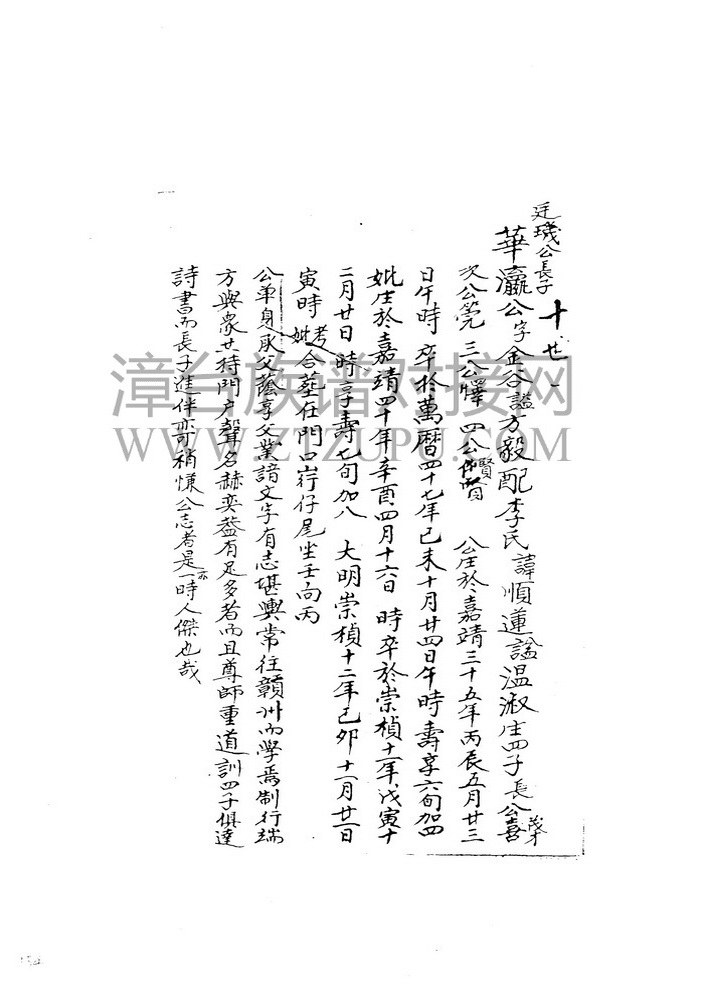 十世
廷璣公長子
華瀛公字金谷諡方毅配李氏諱順蓮諡温淑生四子長公喜茂才
次公筦 三公懌 四公賢 公生於嘉靖三十五年丙辰五月廿三
日午時 卒於萬曆四十七年己未十月廿四日午時壽享六旬加四
妣生於嘉靖四十年辛酉四月十六日 時卒於崇禎十一年戊寅十
二月廿日 時享壽七旬加八 大明崇禎十二年己卯十一月廿一日
寅時考妣合葬在門口崎仔尾坐壬向丙
公单身承父蔭享父業諳文字有志堪輿常往贛州而學焉制行端
方與衆共持門户聲名赫奕葢有足多者而且尊師重道訓四子俱達
詩書而長子進伴亦稍慊公志者是亦一時人傑也哉
漳台族谱对接网
WWW.ZTZUPU.COM